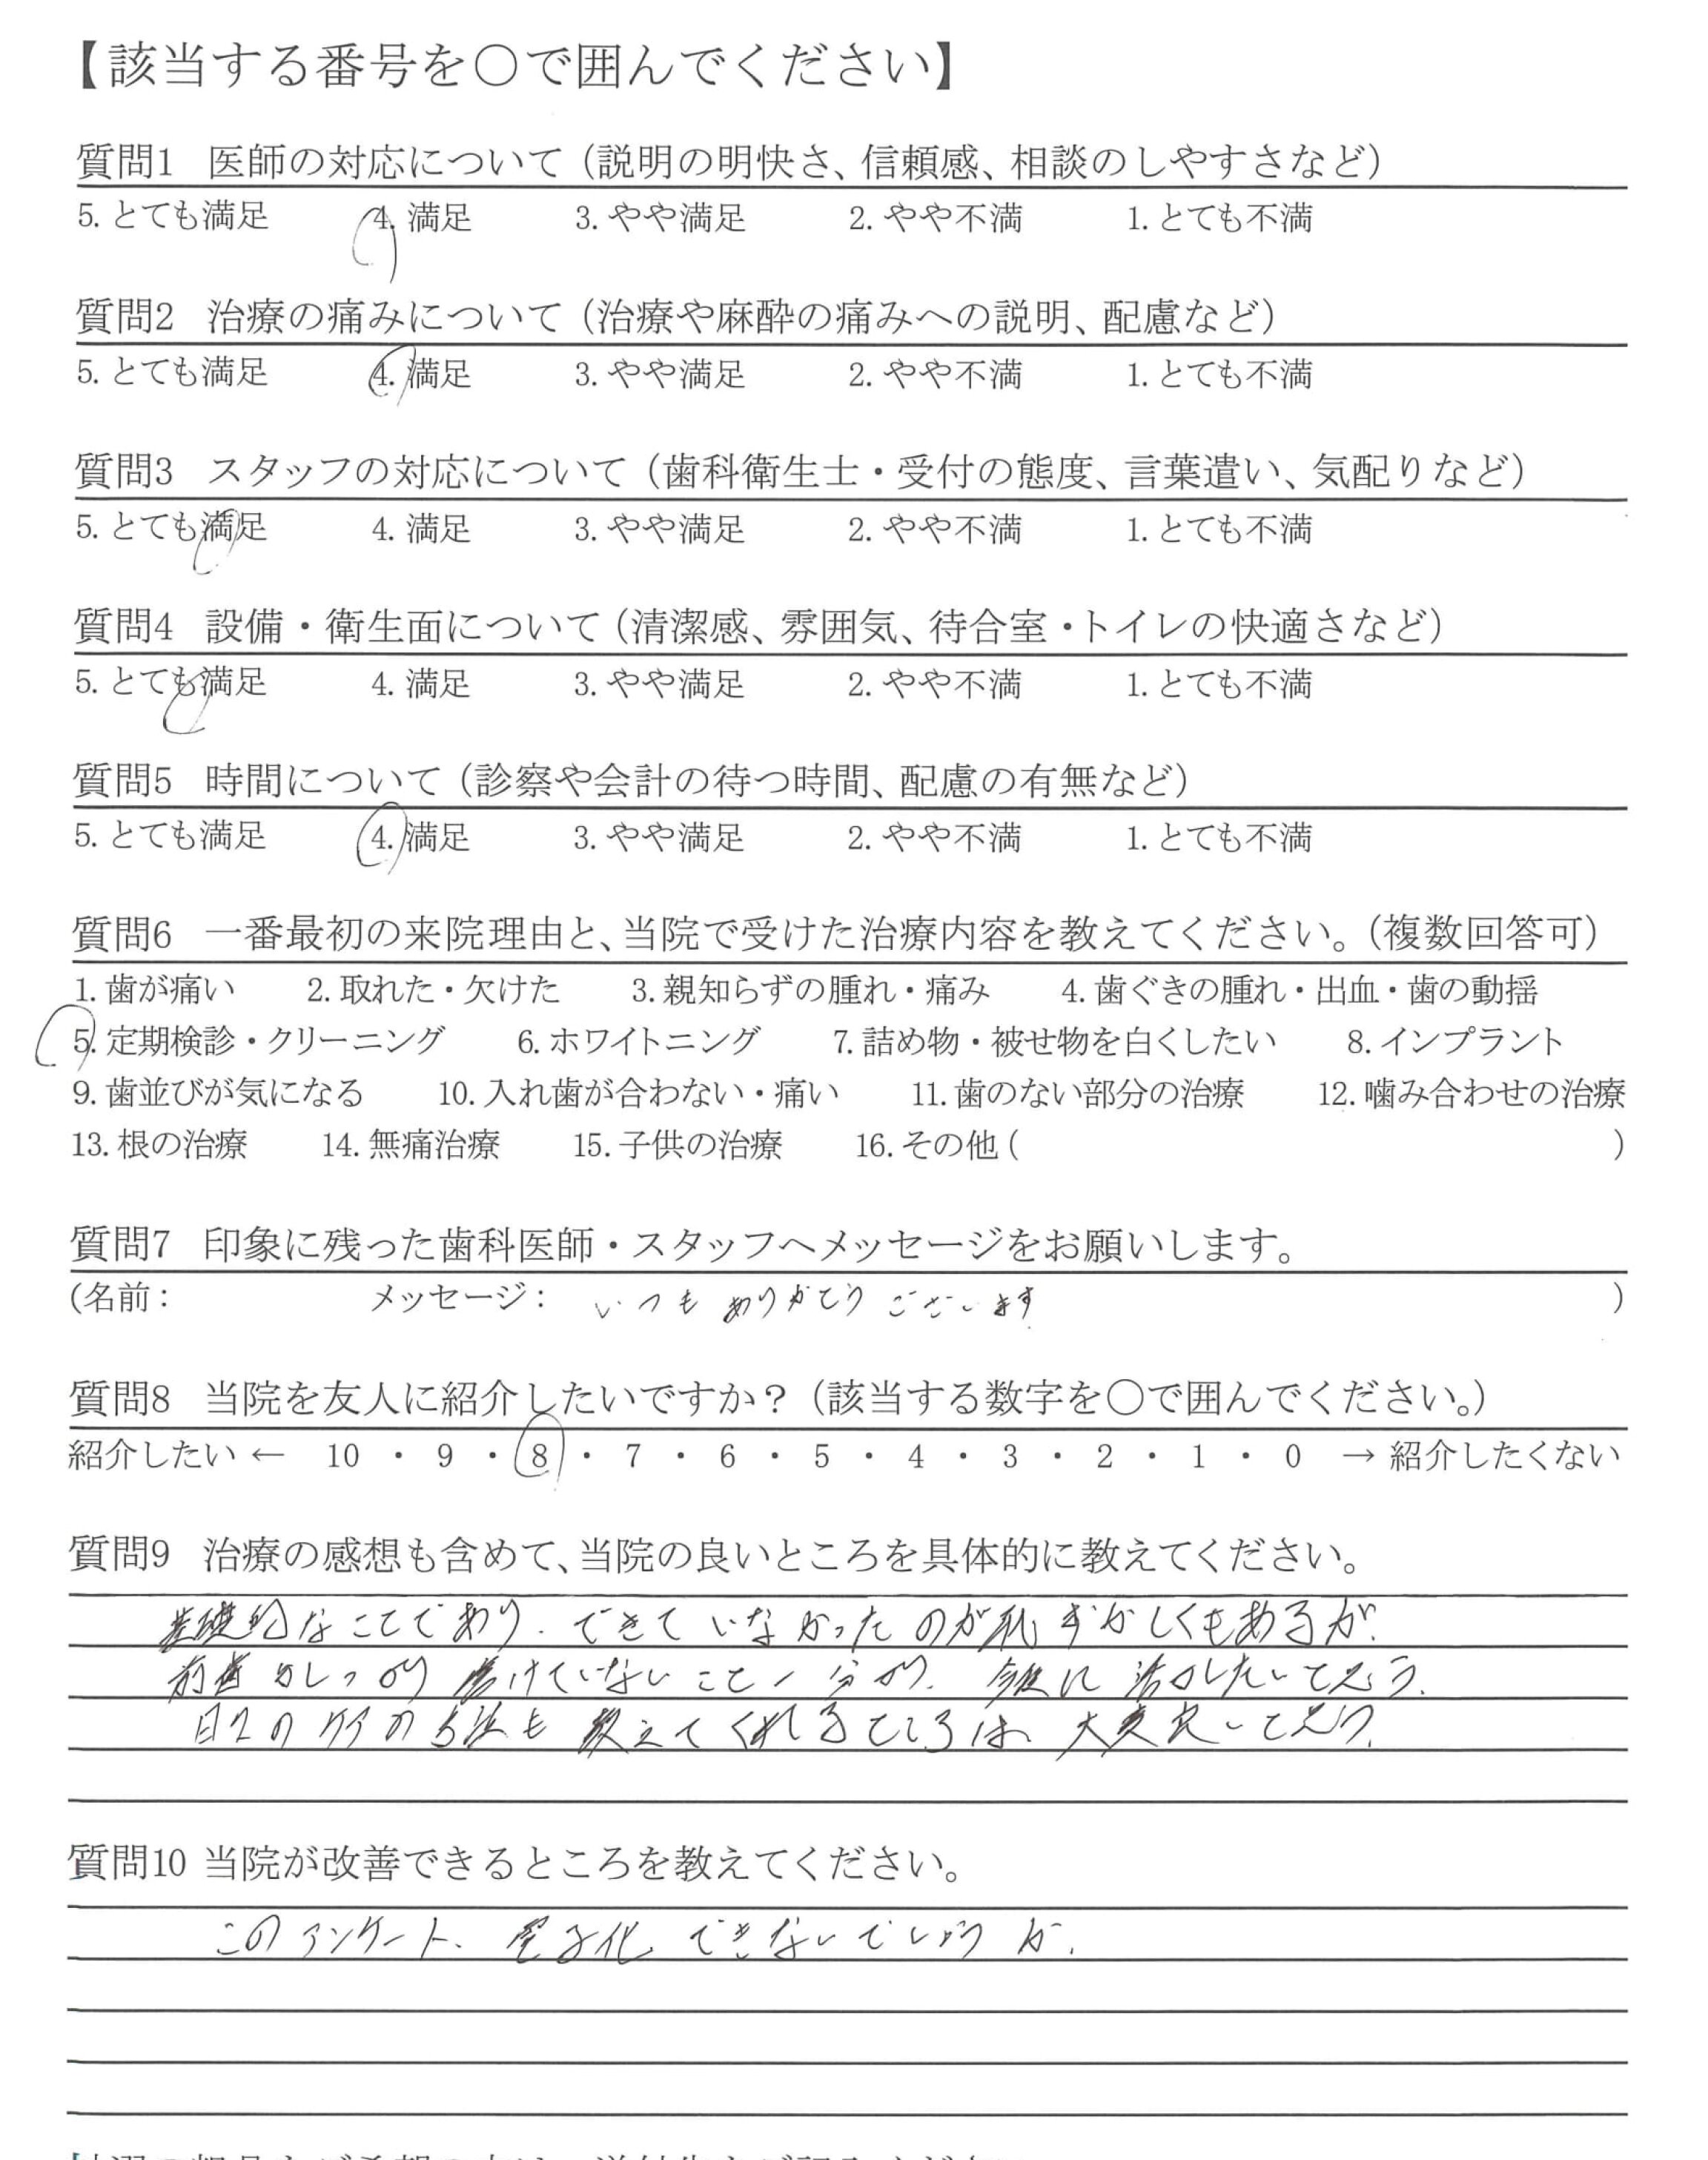 【該当する番号を○で囲んでください】
質問1 医師の対応について（説明の明快さ、信頼感、相談のしやすさなど）
5. とても満足 4. 満足 3. やや満足 2. やや不満 1. とても不満
質問2 治療の痛みについて（治療や麻酔の痛みへの説明、配慮など）
5. とても満足 4. 満足 3. やや満足 2. やや不満 1. とても不満
質問3 スタッフの対応について（歯科衛生士・受付の態度、言葉遣い、気配りなど）
5. とても満足 4. 満足 3. やや満足 2. やや不満 1. とても不満
質問4 設備・衛生面について（清潔感、雰囲気、待合室・トイレの快適さなど）
5. とても満足 4. 満足 3. やや満足 2. やや不満 1. とても不満
質問5 時間について（診察や会計の待つ時間、配慮の有無など）
5. とても満足 4. 満足 3. やや満足 2. やや不満 1. とても不満
質問6 一番最初の来院理由と、当院で受けた治療内容を教えてください。（複数回答可）
1. 歯が痛い 2. 取れた・欠けた 3. 親知らずの腫れ・痛み 4. 歯ぐきの腫れ・出血・歯の動揺
5. 定期検診・クリーニング 6. ホワイトニング 7. 詰め物・被せ物を白くしたい 8. インプラント
9. 歯並びが気になる 10. 入れ歯が合わない・痛い 11. 歯のない部分の治療 12. 噛み合わせの治療
13. 根の治療 14. 無痛治療 15. 子供の治療 16. その他（ ）
質問7 印象に残った歯科医師・スタッフへメッセージをお願いします。
（名前： メッセージ： いつもありがとうございます ）
質問8 当院を友人に紹介したいですか？（該当する数字を○で囲んでください。）
紹介したい ← 10 ・ 9 ・ 8 ・ 7 ・ 6 ・ 5 ・ 4 ・ 3 ・ 2 ・ 1 ・ 0 → 紹介したくない
質問9 治療の感想も含めて、当院の良いところを具体的に教えてください。
基礎的なことであり、できていなかったのが恥ずかしくもあるが、
前歯 しっかり磨けていないこと 分かり、今後に活かしたいと思う。
日々のケアの方法も教えてくれるところは、大変良いと思う。
質問10 当院が改善できるところを教えてください。
このアンケート、電子化できないでしょうか。